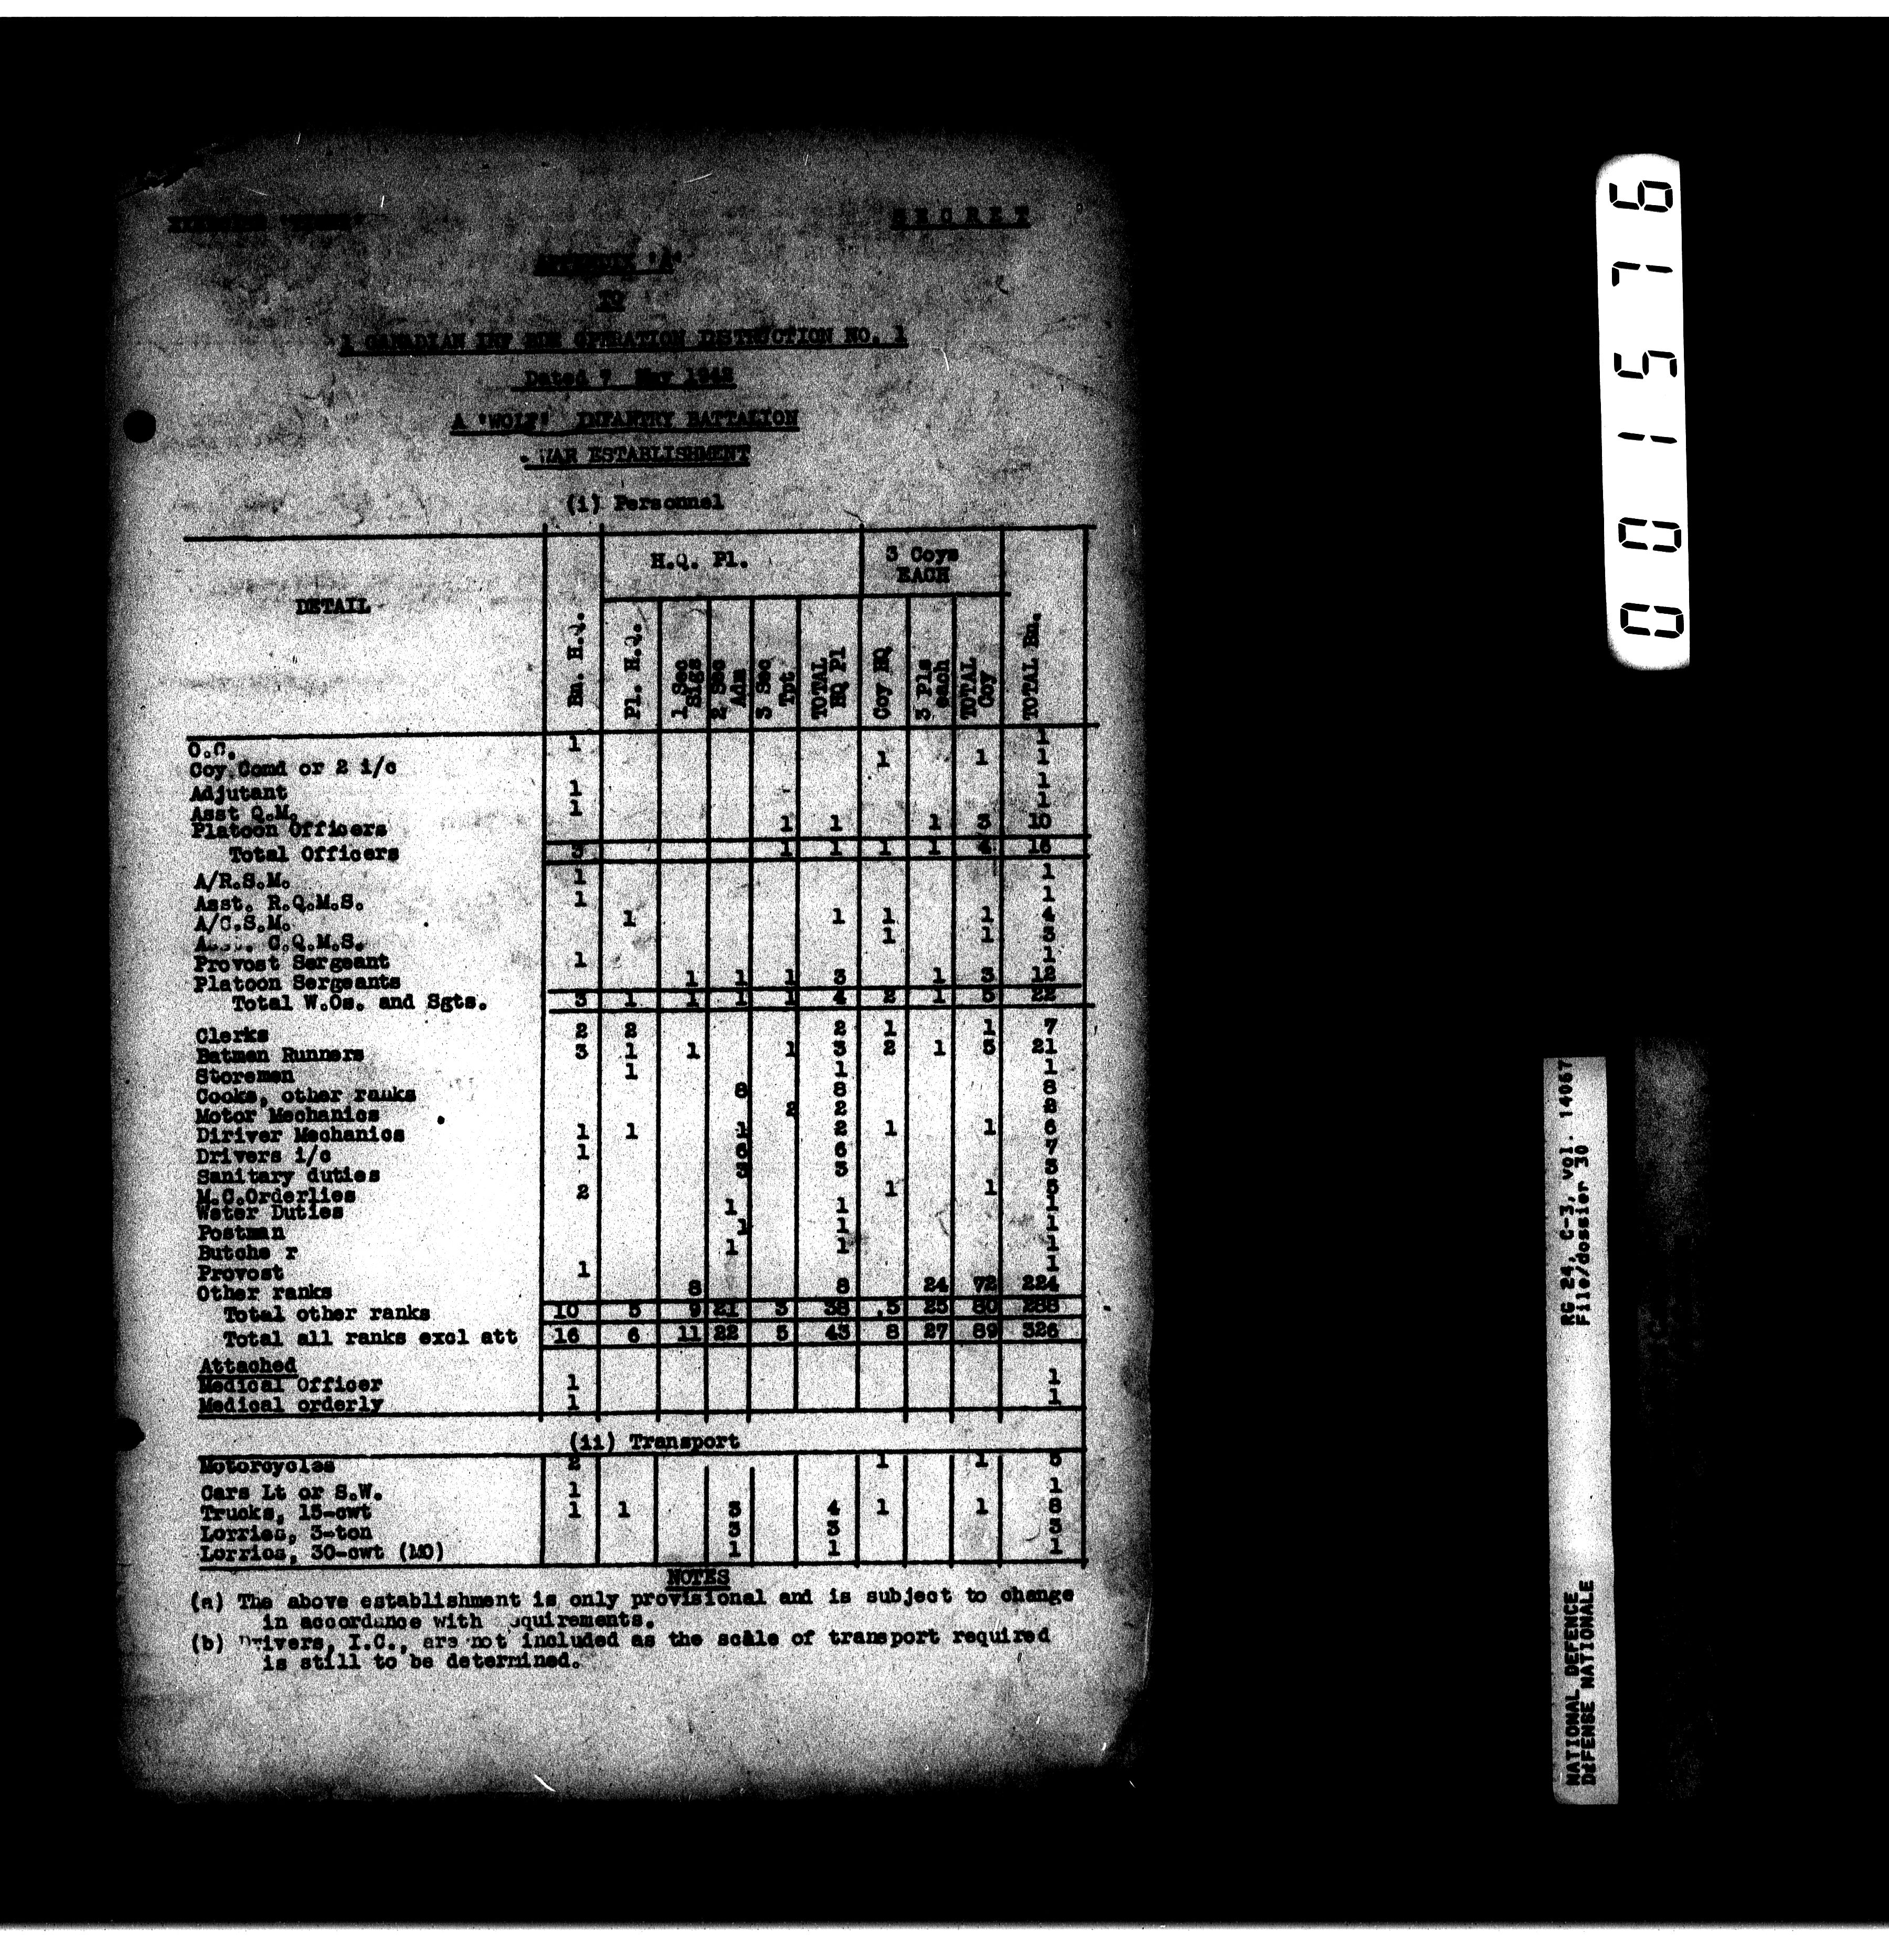 SECRET
APPENDIX 'A'
TO
1 CANADIAN INF BDE OPERATION INSTRUCTION NO. 1
Dated 7 May 1942
A 'WOLF' INFANTRY BATTALION
WAR ESTABLISHMENT
(i) Personnel
DETAIL Bn. H.Q. H.Q. Pl. 3 Coys EACH TOTAL Bn.
Pl. H.Q. 1 Sec Sigs 2 Sec Adm 3 Sec Tpt TOTAL HQ Pl Coy HQ 3 Pls each TOTAL Coy
O.C. 1 1
Coy Comd or 2 i/c 1 1 1
Adjutant 1 1
Asst Q.M. 1 1
Platoon Officers 1 1 1 3 10
Total Officers 3 1 1 1 1 4 16
A/R.S.M. 1 1
Asst. R.Q.M.S. 1 1
A/C.S.M. 1 1 1 1 4
C.Q.M.S. 1 1 3
Provost Sergeant 1 1
Platoon Sergeants 1 1 1 3 1 3 12
Total W.Os. and Sgts. 3 1 1 1 1 4 2 1 5 22
Clerks 2 2 2 1 1 7
Batmen Runners 3 1 1 1 3 2 1 5 21
Storemen 1 1 1
Cooks, other ranks 8 8 8
Motor Mechanics 2 2 2
Diriver Mechanics 1 1 1 2 1 1 6
Drivers i/c 1 6 6 7
Sanitary duties 3 3 3
M.C.Orderlies 2 1 1 5
Water Duties 1 1 1
Postman 1 1 1
Butche r 1 1 1
Provost 1 1
Other ranks 8 8 24 72 224
Total other ranks 10 5 9 21 3 38 5 25 80 288
Total all ranks excl att 16 6 11 22 5 43 8 27 89 326
Attached
Medical Officer 1 1
Medical orderly 1 1
(ii) Transport
Motorcycles 2 1 1 5
Cars Lt or S.W. 1 1
Trucks, 15-cwt 1 1 3 4 1 1 8
Lorries, 3-ton 3 3 3
Lorries, 30-cwt (MO) 1 1 1
NOTES
(a) The above establishment is only provisional and is subject to change
in accordance with equirements.
(b) Drivers, I.C., are not included as the scale of transport required
is still to be determined.
001576
RG 24, C-3, vol. 14057
File/dossier 30
NATIONAL DEFENCE
DÉFENSE NATIONALE